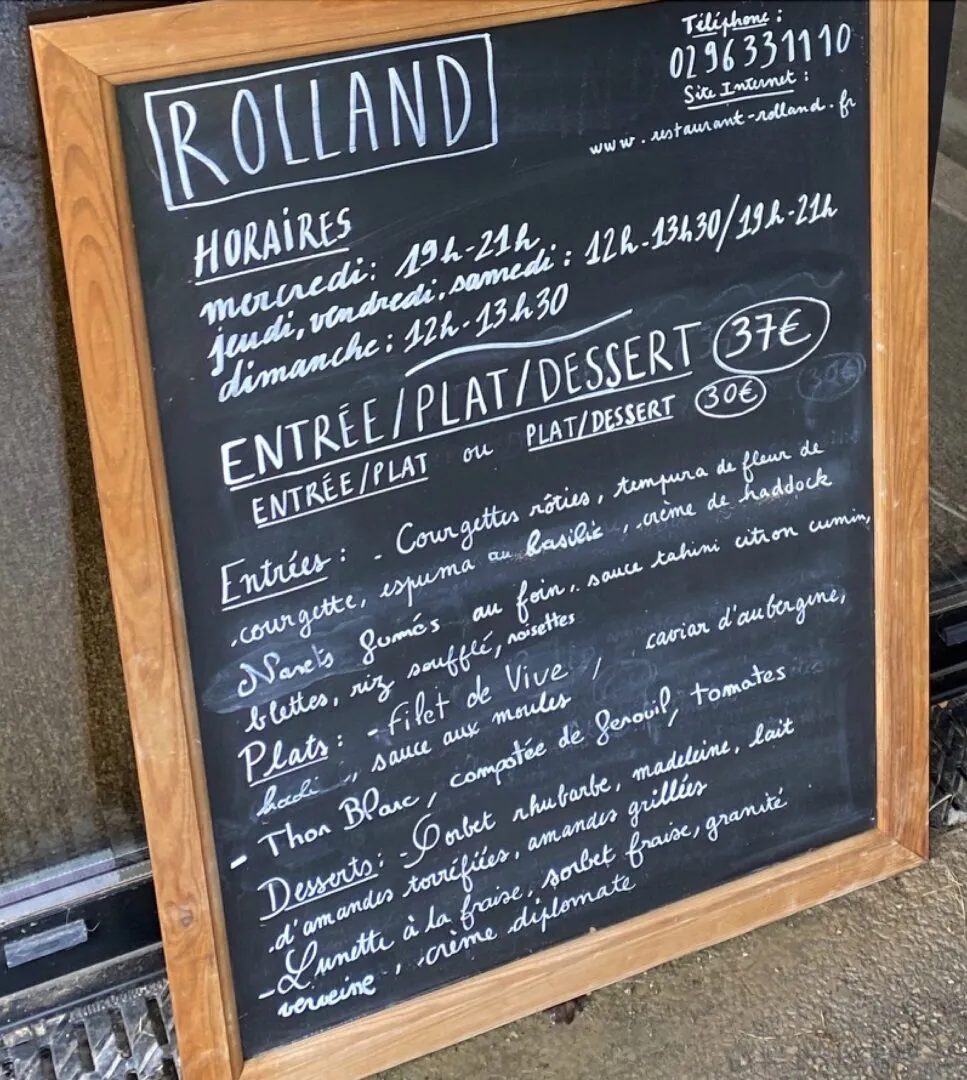 ROLLAND
Téléphone :
02 96 33 11 10
Site Internet :
www.restaurant-rolland.fr
HORAIRES
mercredi : 19h-21h
jeudi, vendredi, samedi : 12h-13h30/19h-21h
dimanche : 12h-13h30
ENTRÉE/PLAT/DESSERT 37€
ENTRÉE/PLAT ou PLAT/DESSERT 30€
Entrées : - Courgettes rôties, tempura de fleur de
courgette, espuma au basilic, crème de haddock
Navets fumés au foin, sauce tahini citron cumin,
blettes, riz soufflé, noisettes
Plats : - Filet de Vive, caviar d'aubergine,
sauce aux moules
- Thon Blanc, compotée de fenouil, tomates
Desserts : - Sorbet rhubarbe, madeleine, lait
d'amandes torréfiées, amandes grillées
- Lunette à la fraise, sorbet fraise, granité
verveine, crème diplomate